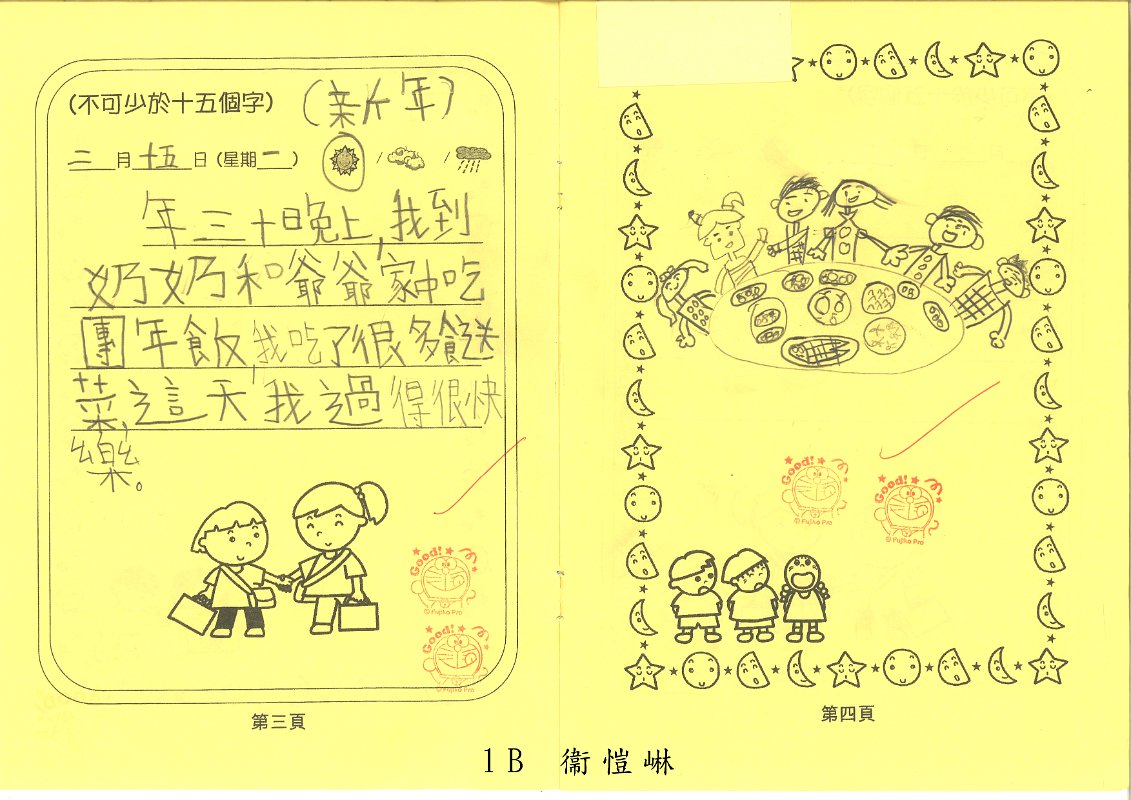 (不可少於十五個字) (新年)
二月十五日(星期一) / /
年三十日晚上,我到
奶奶和爺爺家中吃
團年飯,我吃了很多餸
菜,這天我過得很快
樂。
Good!
© Fujiko Pro
Good!
© Fujiko Pro
第三頁
Good!
© Fujiko Pro
Good!
© Fujiko Pro
第四頁
1B 衞愷崊